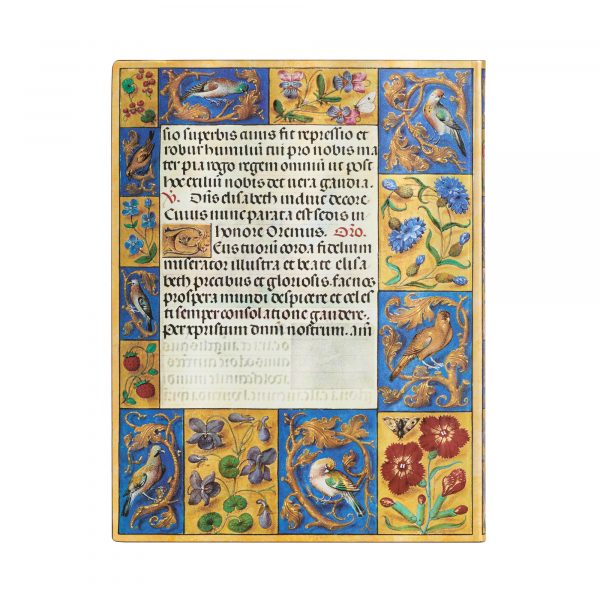 sio superbis cuius fit repressio et
robur humiliū tu pro nobis ma
ter pia rogo regem omniū ut post
hoc exiliū nobis det vera gaudia.
V. elisabeth decore
Cuius nunc parata est sedis in
honore Oremus. Oro.
Deus tuorū corda fidelium
miserator illustra et beate elisa
beth precibus et gloriosis. facnos
prospera mundi despicere et celes
ti semper consolatione gaudere.
Per xpristum dnm nostrum. Am